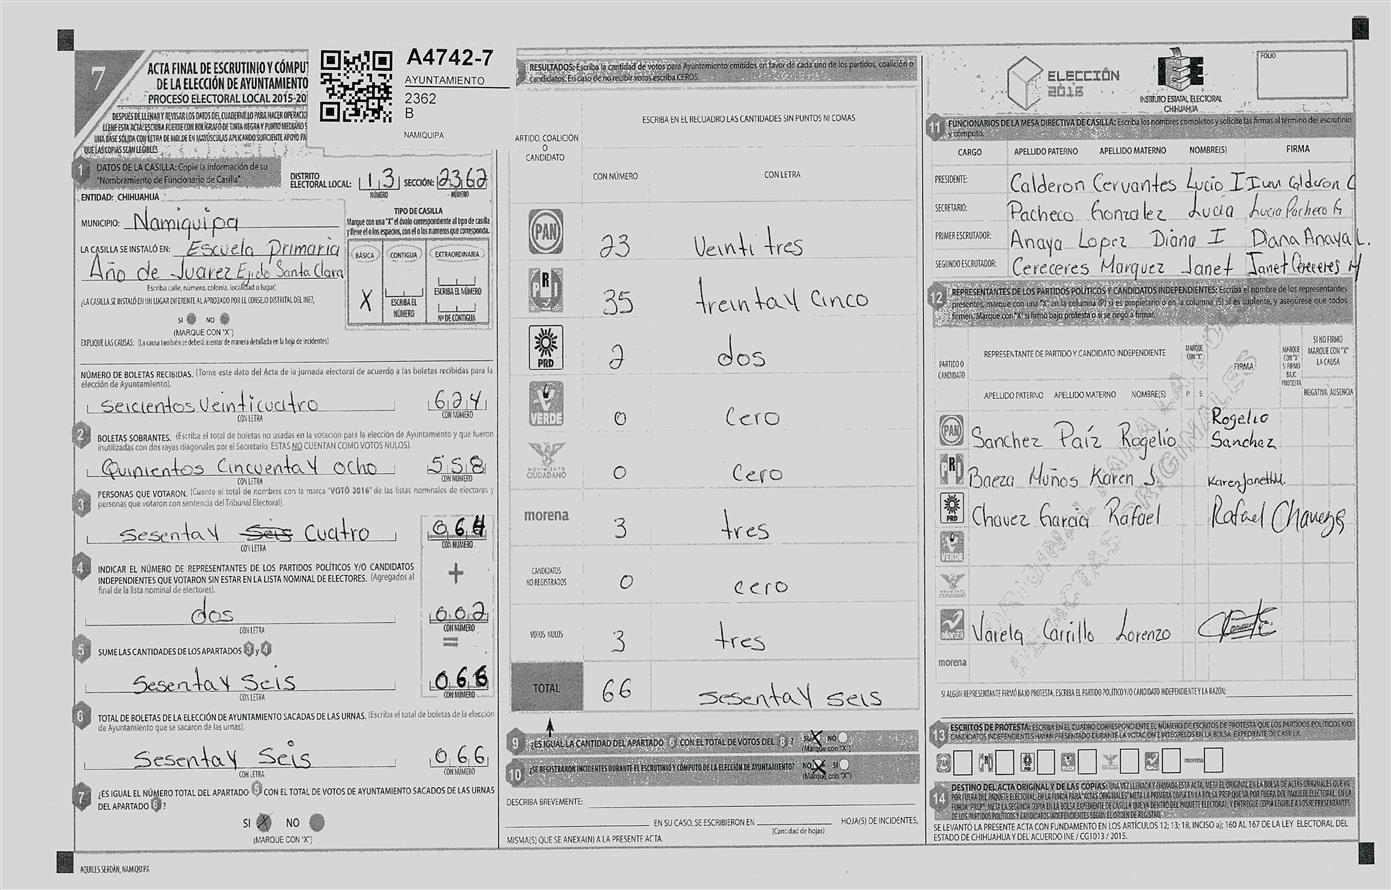 7
ACTA FINAL DE ESCRUTINIO Y CÓMPUT
DE LA ELECCIÓN DE AYUNTAMIENTO
PROCESO ELECTORAL LOCAL 2015-20
DESPUÉS DE LLENAR Y REVISAR LOS DATOS DEL CUADERNILLO PARA HACER OPERACIO
LLENE ESTA ACTA: ESCRIBA FUERTE CON BOLÍGRAFO DE TINTA NEGRA Y PUNTO MEDIANO S
UNA BASE SÓLIDA CON LETRA DE MOLDE EN MAYÚSCULAS APLICANDO SUFICIENTE APOYO PA
QUE LAS COPIAS SEAN LEGIBLES
A4742-7
AYUNTAMIENTO
2362
B
NAMIQUIPA
1 DATOS DE LA CASILLA: Copie la información de su
"Nombramiento de Funcionario de Casilla".
DISTRITO ELECTORAL LOCAL: 13 SECCIÓN: 2362
NÚMERO NÚMERO
ENTIDAD: CHIHUAHUA
MUNICIPIO: Namiquipa
LA CASILLA SE INSTALÓ EN: Escuela Primaria
Año de Juarez Ejido Santa Clara
Escriba calle, número, colonia, localidad o lugar.
¿LA CASILLA SE INSTALÓ EN UN LUGAR DIFERENTE AL APROBADO POR EL CONSEJO DISTRITAL DEL INE?
SI NO
(MARQUE CON "X")
EXPLIQUE LAS CAUSAS: (La causa también se deberá asentar de manera detallada en la hoja de incidentes)
TIPO DE CASILLA
Marque con una "X" el óvalo correspondiente al tipo de casilla
y llene el o los espacios, con el o los números que corresponda.
BÁSICA CONTIGUA EXTRAORDINARIA
X
ESCRIBA EL NÚMERO
ESCRIBA EL NÚMERO
Nº DE CONTIGUA
NÚMERO DE BOLETAS RECIBIDAS. (Tome este dato del Acta de la jornada electoral de acuerdo a las boletas recibidas para la
elección de Ayuntamiento).
Seicientos Veinticuatro 624
CON LETRA CON NÚMERO
2 BOLETAS SOBRANTES. (Escriba el total de boletas no usadas en la votación para la elección de Ayuntamiento y que fueron
inutilizadas con dos rayas diagonales por el Secretario. ÉSTAS NO CUENTAN COMO VOTOS NULOS).
Quinientos Cincuenta Y ocho 558
CON LETRA CON NÚMERO
3 PERSONAS QUE VOTARON. (Cuente el total de nombres con la marca "VOTÓ 2016" de las listas nominales de electores y
personas que votaron con sentencia del Tribunal Electoral).
Sesenta Y Seis Cuatro 064
CON LETRA CON NÚMERO
+
4 INDICAR EL NÚMERO DE REPRESENTANTES DE LOS PARTIDOS POLÍTICOS Y/O CANDIDATOS
INDEPENDIENTES QUE VOTARON SIN ESTAR EN LA LISTA NOMINAL DE ELECTORES. (Agregados al
final de la lista nominal de electores).
dos 002
CON LETRA CON NÚMERO
=
5 SUME LAS CANTIDADES DE LOS APARTADOS 3 y 4
Sesenta Y Seis 066
CON LETRA CON NÚMERO
6 TOTAL DE BOLETAS DE LA ELECCIÓN DE AYUNTAMIENTO SACADAS DE LAS URNAS. (Escriba el total de boletas de la elección
de Ayuntamiento que se sacaron de las urnas).
Sesenta Y Seis 066
CON LETRA CON NÚMERO
7 ¿ES IGUAL EL NÚMERO TOTAL DEL APARTADO 5 CON EL TOTAL DE VOTOS DE AYUNTAMIENTO SACADOS DE LAS URNAS
DEL APARTADO 6?
SI X NO
(MARQUE CON "X")
AQUILES SERDÁN, NAMIQUIPA
RESULTADOS: Escriba la cantidad de votos para Ayuntamiento emitidos en favor de cada uno de los partidos, coalición o
candidatos. En caso de no recibir votos escriba CEROS.
ESCRIBA EN EL RECUADRO LAS CANTIDADES SIN PUNTOS NI COMAS
PARTIDO, COALICIÓN
O
CANDIDATO
CON NÚMERO CON LETRA
PAN 23 Veinti tres
PRI 35 treinta Y Cinco
PRD 2 dos
VERDE 0 Cero
MOVIMIENTO CIUDADANO 0 cero
morena 3 tres
CANDIDATOS NO REGISTRADOS 0 cero
VOTOS NULOS 3 tres
TOTAL 66 Sesenta Y Seis
9 ¿ES IGUAL LA CANTIDAD DEL APARTADO 6 CON EL TOTAL DE VOTOS DEL 8? SI X NO
(Marque con "X")
10 ¿SE REGISTRARON INCIDENTES DURANTE EL ESCRUTINIO Y CÓMPUTO DE LA ELECCIÓN DE AYUNTAMIENTO? NO X SI
(Marque con "X")
DESCRIBA BREVEMENTE:
EN SU CASO, SE ESCRIBIERON EN HOJA(S) DE INCIDENTES,
(Cantidad de hojas)
MISMA(S) QUE SE ANEXA(N) A LA PRESENTE ACTA.
ELECCIÓN
2016
IEE
INSTITUTO ESTATAL ELECTORAL
CHIHUAHUA
FOLIO
11 FUNCIONARIOS DE LA MESA DIRECTIVA DE CASILLA: Escriba los nombres completos y solicite las firmas al término del escrutinio
y cómputo.
CARGO APELLIDO PATERNO APELLIDO MATERNO NOMBRE(S) FIRMA
PRESIDENTE: Calderon Cervantes Lucio I
SECRETARIO: Pacheco Gonzalez Lucía Lucia Pacheco G
PRIMER ESCRUTADOR: Anaya Lopez Diana I Dana Anaya L.
SEGUNDO ESCRUTADOR: Cereceres Marquez Janet Janet Cereceres M
12 REPRESENTANTES DE LOS PARTIDOS POLÍTICOS Y CANDIDATOS INDEPENDIENTES: Escriba el nombre de los representantes
presentes, marque con una "X" en la columna (P) si es propietario o en la columna (S) si es suplente, y asegúrese que todos
firmen. Marque con "X" si firmó bajo protesta o si se negó a firmar.
PARTIDO O CANDIDATO
REPRESENTANTE DE PARTIDO Y CANDIDATO INDEPENDIENTE
MARQUE CON "X"
FIRMA
MARQUE CON "X" SI FIRMÓ BAJO PROTESTA
SI NO FIRMÓ MARQUE CON "X" LA CAUSA
APELLIDO PATERNO APELLIDO MATERNO NOMBRE(S) P S
NEGATIVA AUSENCIA
PAN Sanchez Paíz Rogelio Rogelio Sanchez
PRI Baeza Muños Karen J. Karen Janeth M.
PRD Chavez Garcia Rafael Rafael Chavez G
VERDE
MOVIMIENTO CIUDADANO
alianza Varela Carrillo Lorenzo
morena
SI ALGÚN REPRESENTANTE FIRMÓ BAJO PROTESTA, ESCRIBA EL PARTIDO POLÍTICO Y/O CANDIDATO INDEPENDIENTE Y LA RAZÓN:
13 ESCRITOS DE PROTESTA: ESCRIBA EN EL CUADRO CORRESPONDIENTE EL NÚMERO DE ESCRITOS DE PROTESTA QUE LOS PARTIDOS POLÍTICOS Y/O
CANDIDATOS INDEPENDIENTES HAYAN PRESENTADO DURANTE LA VOTACIÓN E INTÉGRELOS EN LA BOLSA EXPEDIENTE DE CASILLA.
14 DESTINO DEL ACTA ORIGINAL Y DE LAS COPIAS:
SE LEVANTÓ LA PRESENTE ACTA CON FUNDAMENTO EN LOS ARTÍCULOS 12; 13; 18, INCISO a); 160 AL 167 DE LA LEY ELECTORAL DEL
ESTADO DE CHIHUAHUA Y DEL ACUERDO INE / CG1013 / 2015.